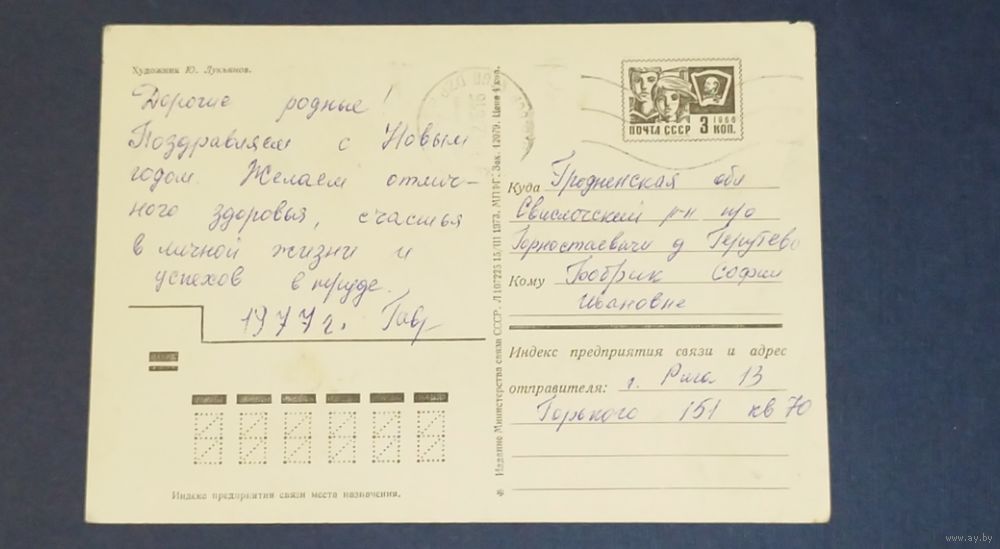 Художник Ю. Лукьянов.
Дорогие родные!
Поздравляем с Новым
годом. Желаем отлич-
ного здоровья, счастья
в личной жизни и
успехов в труде.
1977 г.
Индекс предприятия связи места назначения.
Издание Министерства связи СССР. Л 107225 15/III 1973. МПФГ. Зак. 12079. Цена 4 коп.
ПОЧТА СССР 3 КОП.
1966
Куда Гродненская обл
Свислочский р-н п/о
Горностаевичи д Герутево
Кому Бобрик Софии
Ивановне
Индекс предприятия связи и адрес
отправителя: г. Рига 13
Горького 151 кв 70
www.ay.by